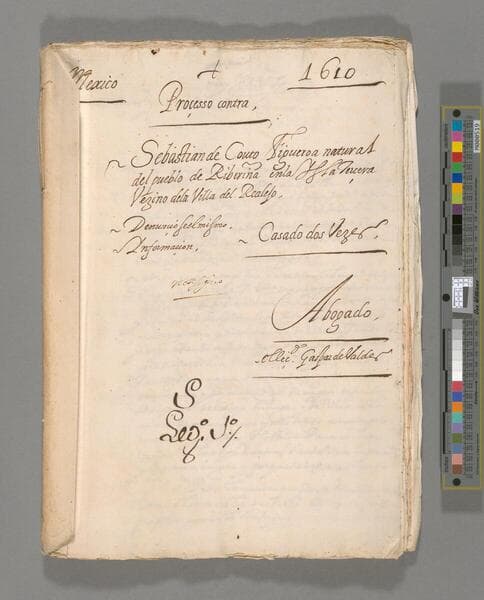 Mexico
1610
Proçesso contra,
Sebastian de Couto Figueroa natural
del pueblo de Ribeirina en la Ysla Tercera
Vezino dela Villa del Realejo,
Denunciose el mismo.
Informaçion,
Casado dos Vezes,
Abogado,
el Liçdo Gaspar de Valdes
S
Lego. 1o.